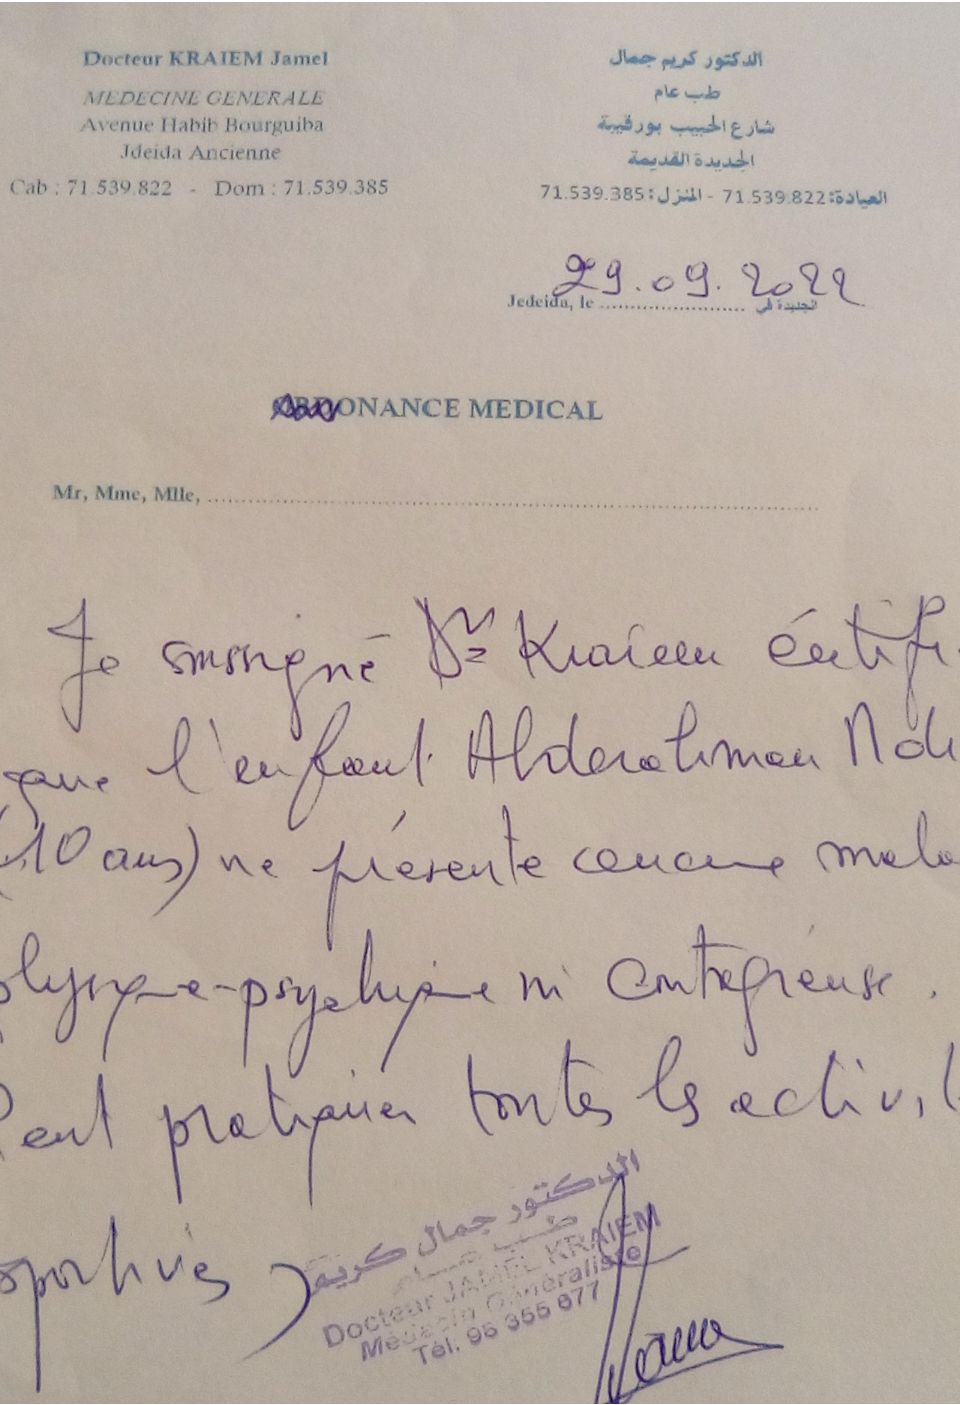 Docteur KRAIEM Jamel
MEDECINE GENERALE
Avenue Habib Bourguiba
Jdeida Ancienne
Cab : 71.539.822 - Dom : 71.539.385
الدكتور كريم جمال
طب عام
شارع الحبيب بورقيبة
الجديدة القديمة
العيادة: 71.539.822 - المنزل: 71.539.385
29.09.2022
Jedeida, le ........................ الجديدة في
ORDONANCE MEDICAL
Mr, Mme, Mlle, ........................
Je soussigné Dr Kraiem certifi
que l'enfant Abderahman
(10 ans) ne présente aucune mala
physique-psychique ni contagieuse.
Peut pratiquer toutes les activit
sportives
الدكتور جمال كريم
طب عام
Docteur JAMEL KRAIEM
Médecin Généraliste
Tél. 95 355 677